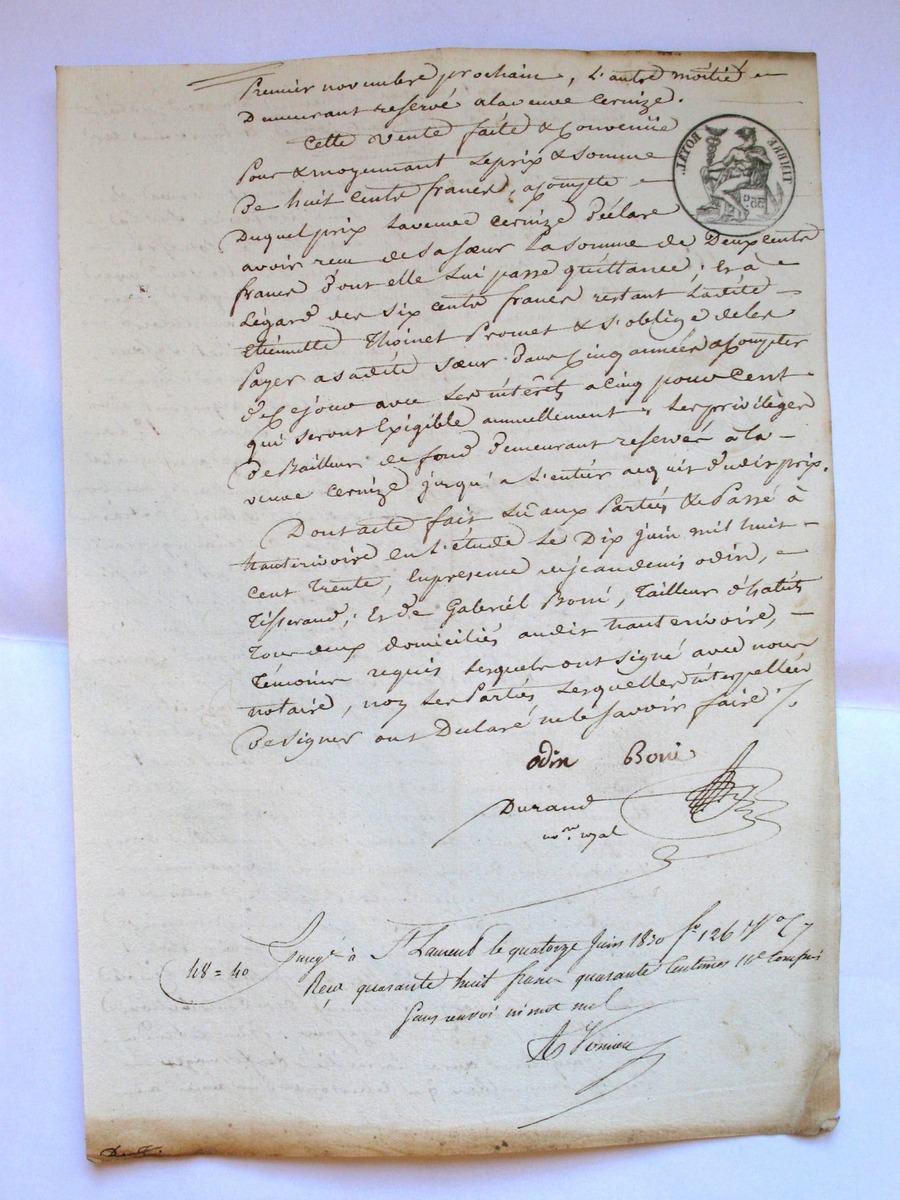 Premier novembre prochain, L'autre moitié
Demeurant reservé a la veuve Cernize.
Cette vente faite & Convenüe
Pour & moyennant Le prix & somme
De huit Cents francs, a Compte
Duquel prix La veuve Cernize déclare
avoir reçu de sa sœur La somme de Deux cents
francs dont elle Lui passe quittance; Et à
Légard des Six Cents francs restant Ladite
Etiennette Thoinet Promet & s'oblige de les
Payer a sadite Sœur dans Cinq années a Compter
de Ce jour avec Les intérêts a Cinq pour Cent
qui seront Exigible annuellement, Les privilèges
de Bailleur de fond demeurant reservés à la
veuve Cernize jusqu'a L'entier acquit dudit prix.
Dont acte fait Lû aux Parties & Passé à
hauterivoire En L'étude Le Dix juin mil huit
cent trente, En presence de jean denis odin,
Tisserand, Et de Gabriël Boni, Tailleur d'habits
Tous deux domiciliés audit hauterivoire,
Témoins requis Lesquels ont signé avec nous
notaire, non Les Parties Lesquelles interpellées
De signer ont Déclaré ne le Savoir faire
TIMBRE ROYAL
odin Boni
Durand
no.re royal
48 = 40
à St Laurent le quatorze Juin 1830 fo 126 Vo C 7
Reçu quarante huit francs quarante Centimes 10e Compris
Sans renvoi ni mot nul